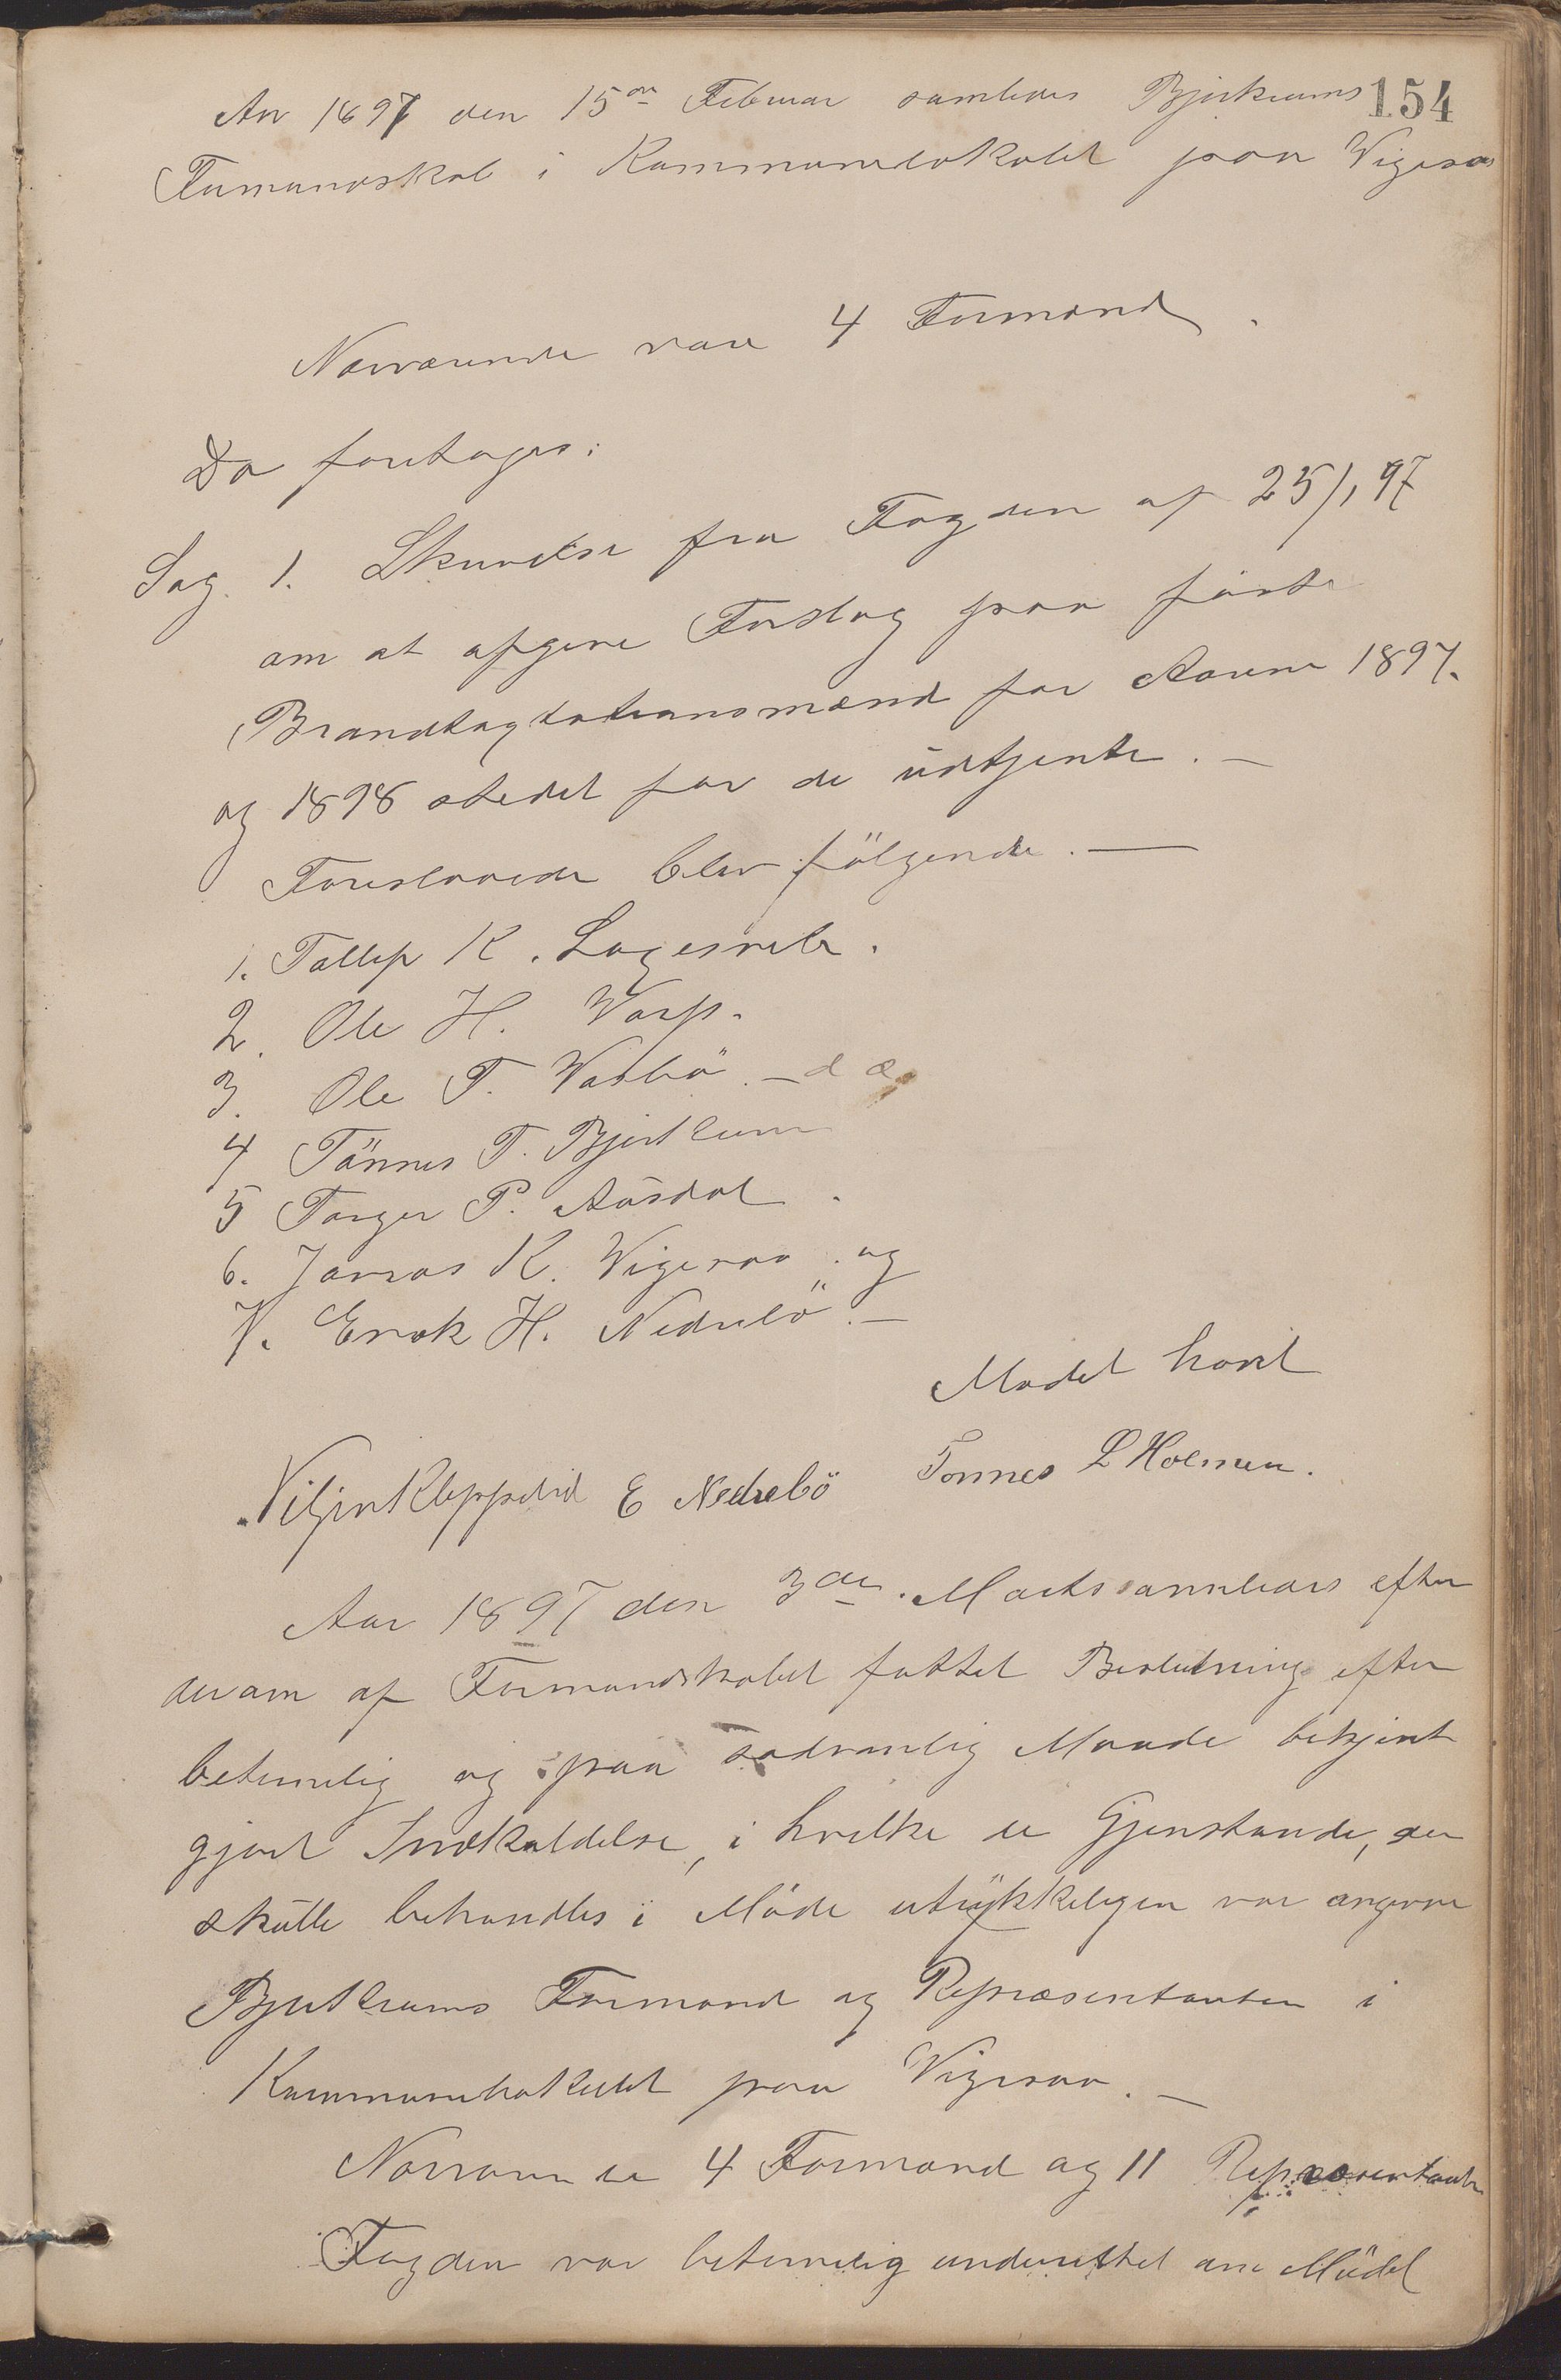 154
Aar 1897 den 15de Februar samledes Bjerkreims
Formandskab i Kommunelokalet paa Vigesaa
Nærværende vare 4 Formænd.
Da foretoges:
Sag. 1. Skrivelse fra Fogden af 25/1 97
om at afgive Forslag paa første
Brandtagtationsmænd for Aarene 1897.
og 1898 istedet for de udtjente. —
Foreslaaede blev følgende. —
1. Tollef K. Lagesvele.
2. Ole H. Varp.
3. Ole T. Vasbö. —
4 Tönnes T. Bjerkreim
5 Torger P. Aasdal.
6. Jonas K. Vigesaa. og
7. Enok H. Nedrebö. —
Mödet hævet
E Nedrebö Tonnes L Holmen.
Aar 1897 den 3die Marts samledes efter
derom af Formandskabet fattet Beslutning efter
betimelig og paa sædvanlig Maade bekjent
gjort Indkaldelse, i hvilke de Gjenstande, der
skulle behandles i Möde utrykkeligen var angivne
Bjerkreims Formænd og Repræsentanter i
Kommunelokalet paa Vigesaa. —
Nærværende 4 Formænd og 11 Repræsentanter
Fogden var betimelig underrettet om Mödet